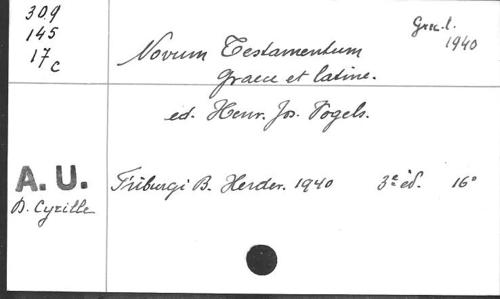 309
145
17 c
Graec. l.
1940
Novum Testamentum
graece et latine.
ed. Henr. Jos. Vogels.
A. U.
D. Cyrille
Friburgi B. Herder. 1940 3e éd. 16°